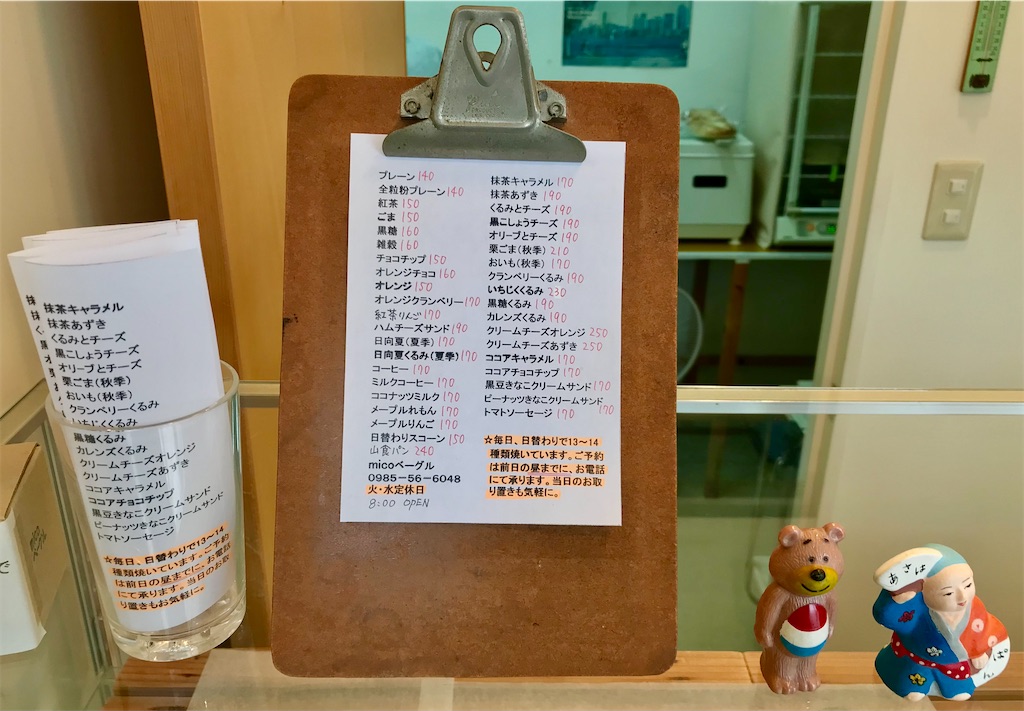 プレーン 140
全粒粉プレーン 140
紅茶 150
ごま 150
黒糖 160
雑穀 160
チョコチップ 150
オレンジチョコ 160
オレンジ 150
オレンジクランベリー 170
紅茶りんご 170
ハムチーズサンド 190
日向夏(夏季) 170
日向夏くるみ(夏季) 170
コーヒー 170
ミルクコーヒー 170
ココナッツミルク 170
メープルれもん 170
メープルりんご 170
日替わりスコーン 150
山食パン 240
micoベーグル
0985-56-6048
火・水定休日
8:00 OPEN
抹茶キャラメル 170
抹茶あずき 190
くるみとチーズ 190
黒こしょうチーズ 190
オリーブとチーズ 190
栗ごま(秋季) 210
おいも(秋季) 170
クランベリーくるみ 190
いちじくくるみ 230
黒糖くるみ 190
カレンズくるみ 190
クリームチーズオレンジ 250
クリームチーズあずき 250
ココアキャラメル 170
ココアチョコチップ 170
黒豆きなこクリームサンド 170
ピーナッツきなこクリームサンド 170
トマトソーセージ 170
☆毎日、日替わりで13~14
種類焼いています。ご予約
は前日の昼までに、お電話
にて承ります。当日のお取
り置きも気軽に。
抹茶キャラメル
抹茶あずき
くるみとチーズ
黒こしょうチーズ
オリーブとチーズ
栗ごま(秋季)
おいも(秋季)
クランベリーくるみ
いちじくくるみ
黒糖くるみ
カレンズくるみ
クリームチーズオレンジ
クリームチーズあずき
ココアキャラメル
ココアチョコチップ
黒豆きなこクリームサンド
ピーナッツきなこクリームサンド
トマトソーセージ
☆毎日、日替わりで13~14
種類焼いています。ご予約
は前日の昼までに、お電話
にて承ります。当日のお取
り置きもお気軽に。
あさは
ぱん